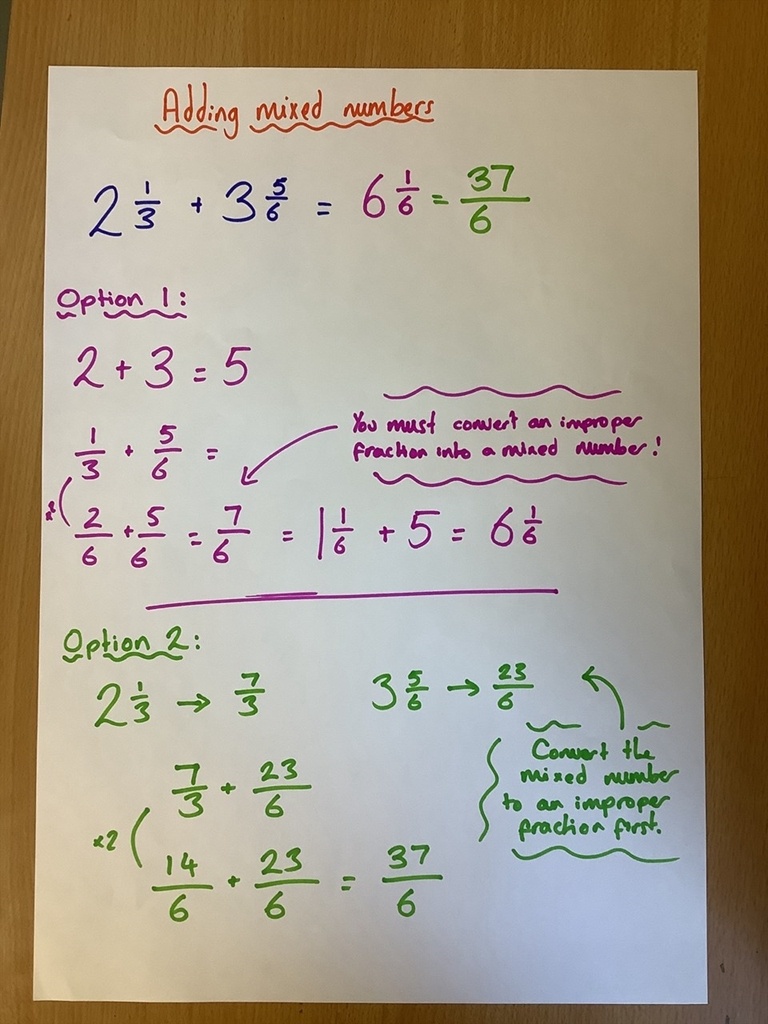 Adding mixed numbers
2 1/3 + 3 5/6 = 6 1/6 = 37/6
Option 1:
2 + 3 = 5
You must convert an improper
fraction into a mixed number!
1/3 + 5/6 =
×2
2/6 + 5/6 = 7/6 = 1 1/6 + 5 = 6 1/6
Option 2:
2 1/3 → 7/3
3 5/6 → 23/6
Convert the
mixed number
to an improper
fraction first.
7/3 + 23/6
×2
14/6 + 23/6 = 37/6